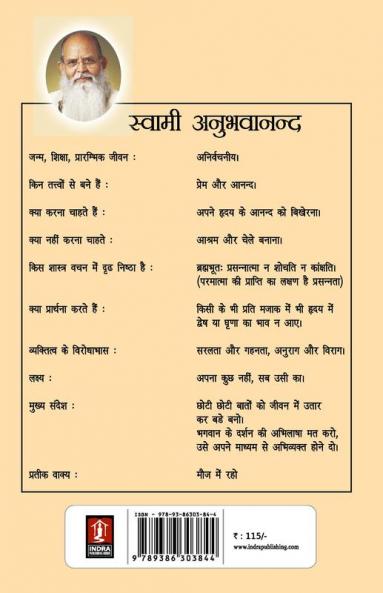 स्वामी अनुभवानन्द
जन्म, शिक्षा, प्रारम्भिक जीवन : अनिर्वचनीय।
किन तत्त्वों से बने हैं : प्रेम और आनन्द।
क्या करना चाहते हैं : अपने हृदय के आनन्द को बिखेरना।
क्या नहीं करना चाहते : आश्रम और चेले बनाना।
किस शास्त्र वचन में दृढ निष्ठा है : ब्रह्मभूतः प्रसन्नात्मा न शोचति न कांक्षति।
(परमात्मा की प्राप्ति का लक्षण है प्रसन्नता)
क्या प्रार्थना करते हैं : किसी के भी प्रति मजाक में भी हृदय में
द्वेष या घृणा का भाव न आए।
व्यक्तित्व के विरोधाभास : सरलता और गहनता, अनुराग और विराग।
लक्ष्य : अपना कुछ नहीं, सब उसी का।
मुख्य संदेश : छोटी छोटी बातों को जीवन में उतार
कर बडे बनो।
भगवान के दर्शन की अभिलाषा मत करो,
उसे अपने माध्यम से अभिव्यक्त होने दो।
प्रतीक वाक्य : मौज में रहो
ISBN - 978-93-86303-84-4
9789386303844
INDRA
PUBLISHING HOUSE
₹ : 115/-
www.indrapublishing.com